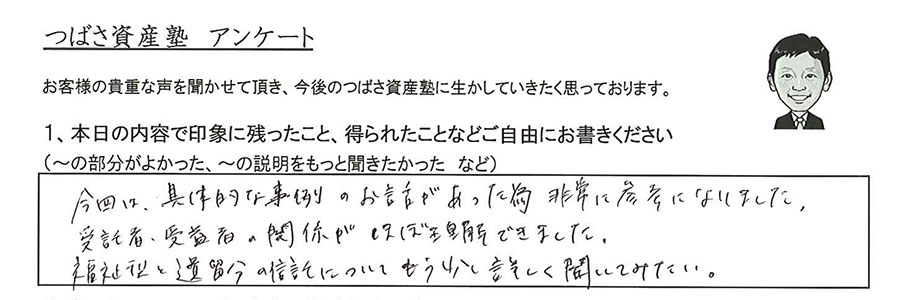 つばさ資産塾 アンケート
お客様の貴重な声を聞かせて頂き、今後のつばさ資産塾に生かしていきたく思っております。
1、本日の内容で印象に残ったこと、得られたことなどご自由にお書きください
（～の部分がよかった、～の説明をもっと聞きたかった など）
今回は、具体的な事例のお話があった為 非常に参考になりました。
受託者、受益者の関係がほぼ理解できました。
福祉型と遺留分の信託についてもう少し詳しく聞いてみたい。